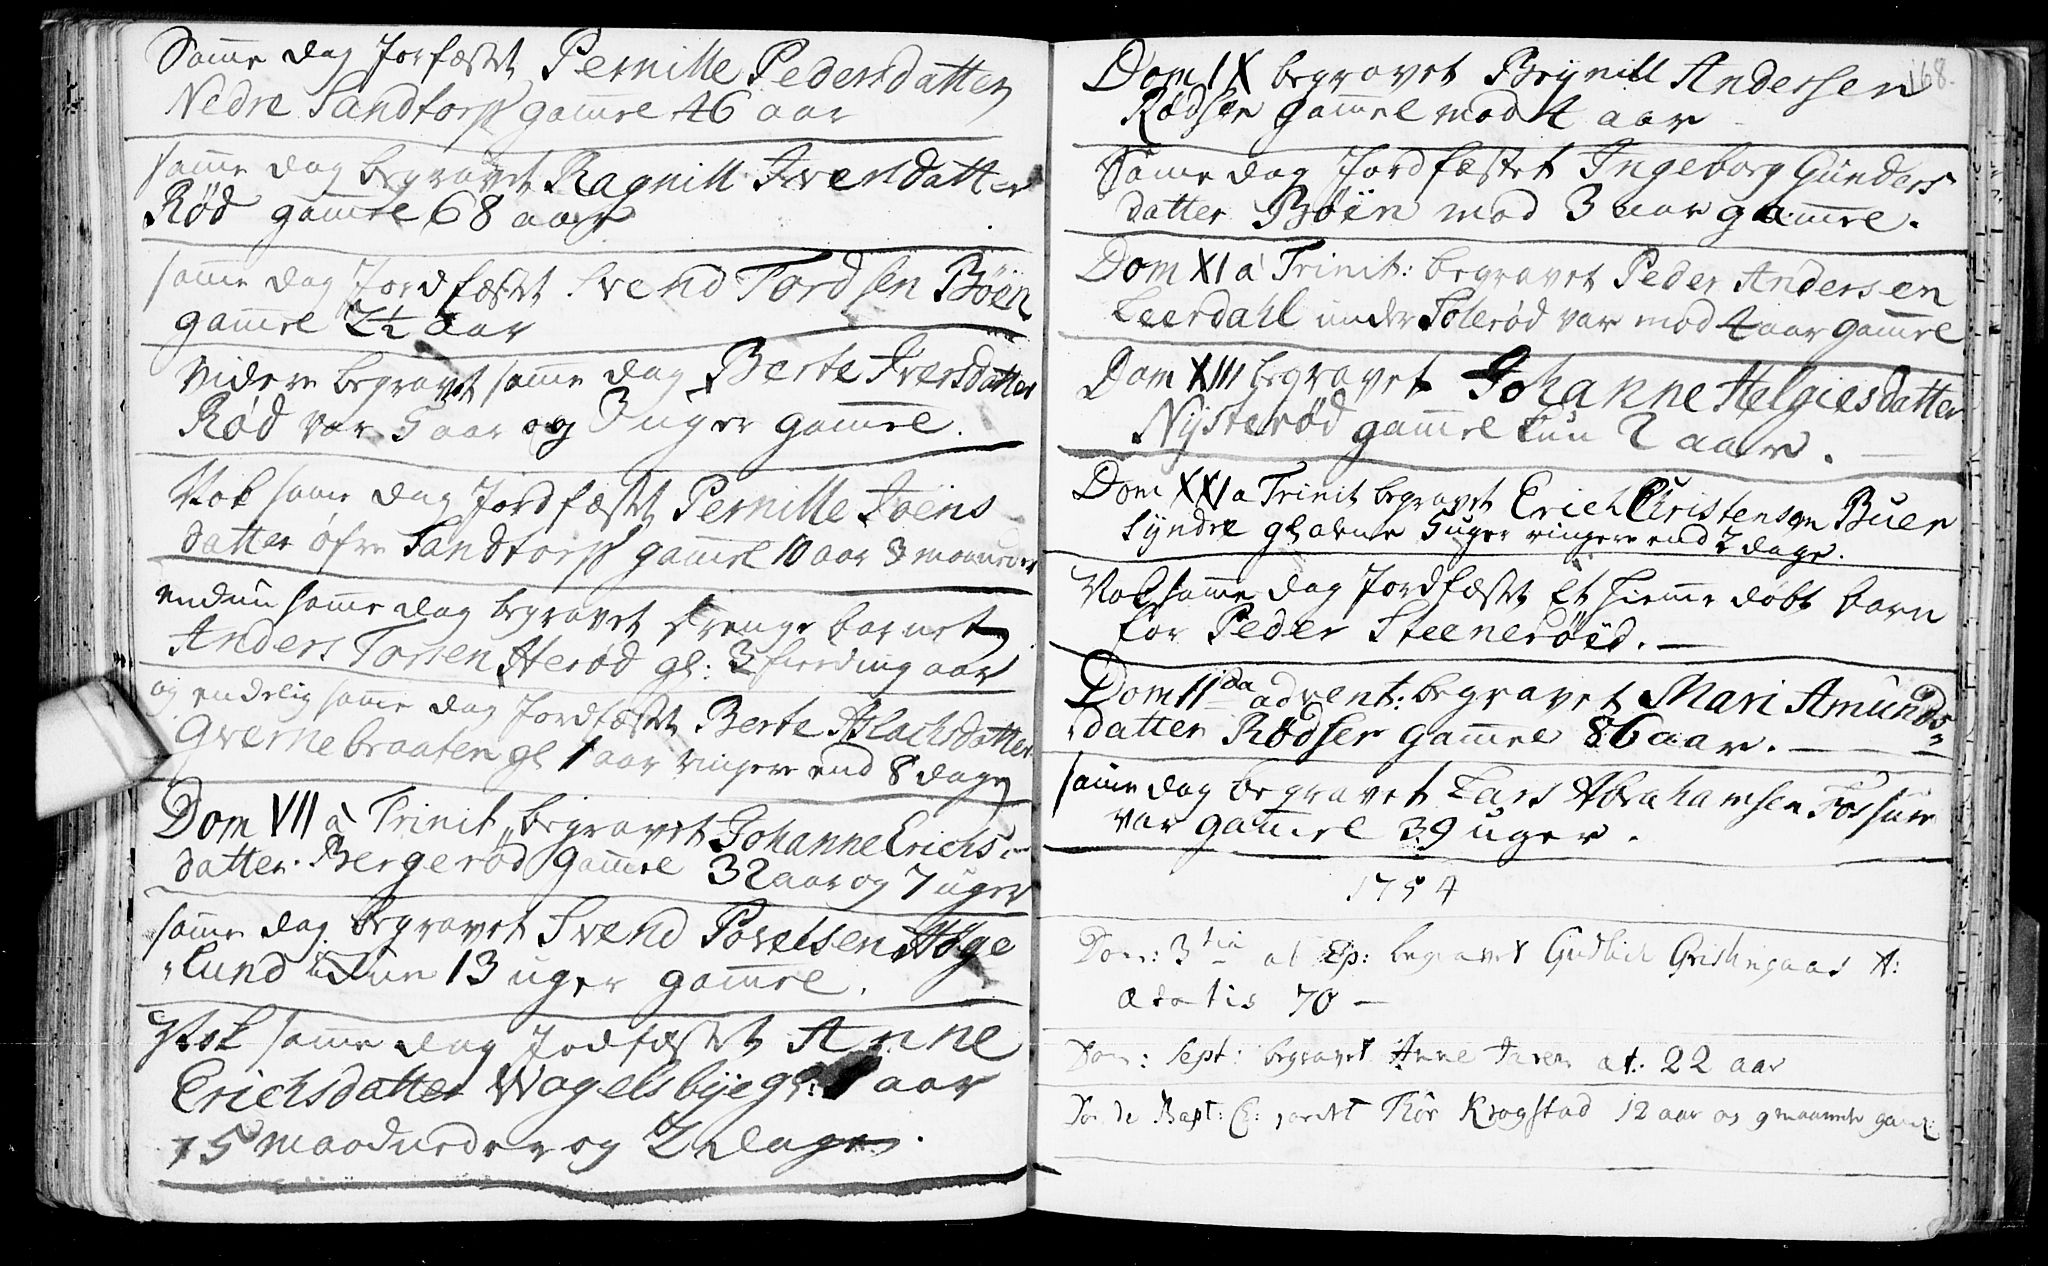 Samme dag Jorfæstet Pernille Pedersdatter
Nedre Sandtorp gamel 46 aar
samme dag begravet Ragnill Iversdatter
Rød gamel 68 aar
samme dag Jordfæstet Svend Tordsen Böen
gamel 2½ aar
videre begravet samme dag Berte Iversdatter
Rød var 5 aar og 3 uger gamel.
Nok samme dag Jordfæstet Pernille Joens
datter øfre Sandtorp gamel 10 aar 3 maaneder
endnu samme dag begravet drenge barnet
Anders Torsen Herød gl: 3 fierding aar
og endelig samme dag Jordfæstet Berte Aslachsdatter
Qvernebraaten gl 1 aar ringere end 8 dage
Dom VII à Trinit begravet Johanne Erichs
datter Bergerød gamel 32 aar og 7 uger
samme dag begravet Svend Povelsen Høge
lund kun 13 uger gamel.
Nok samme dag Jodfæstet Anne
Erichsdatter Wogelsbye gl: 1 aar
5 maaneder og 2 dage.
168.
Dom IX begravet Brynill Andersen
Rødsen gamel mod 4 aar
Same dag Jordfæstet Ingeborg Gunders
datter Böen mod 3 aar gamel.
Dom XI à Trinit: begravet Peder Andersen
Leerdahl under Solerød var mod 4 aar gamel
Dom XIII begravet Johanne Helgiesdatter
Nysterød gamel kun 2 aar.
Dom XXI a Trinit begravet Erich Christensen Buer
Syndre gl 5 uger ringere end 2 dage.
Nok samme dag Jordfæstet Et hieme døbt barn
for Peder Steeneröed.
Dom 11da advent: begravet Mari Amunds
datter Rødsen gamel 86 aar.
samme dag begravet Lars Abrahamsen Fossum
var gamel 39 uger.
1754
Dom: 3tia a Ep: begravet Gudlich A:
ætatis 70
Dom: Sept: begravet Anne Iversen æt: 22 aar
Thor Krogstad 12 aar og 9 maaneder gamel